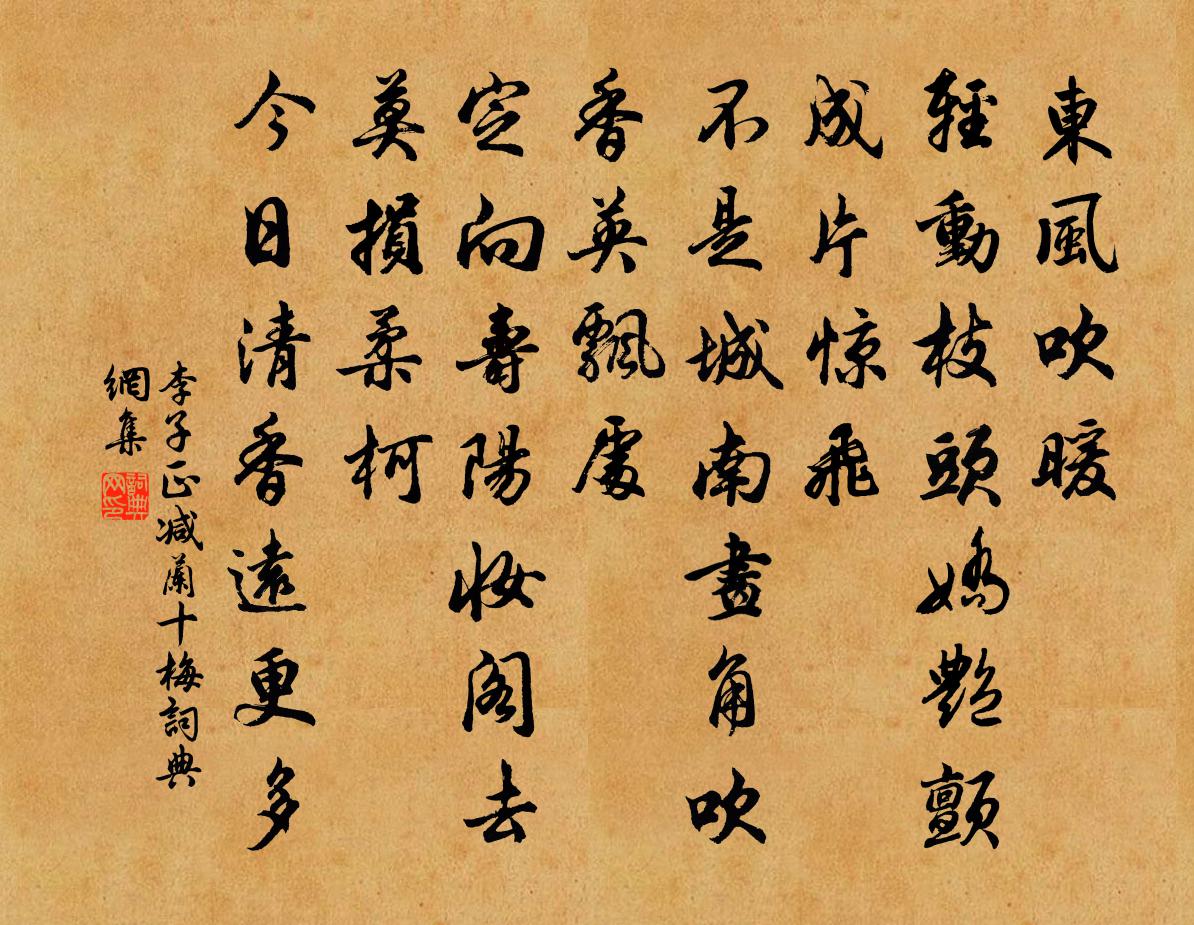 東風吹暖
輕動枝頭嬌艷顫
成片惊飛
不是城南畫角吹
香英飄處
定向壽陽妝閣去
莫損柔柯
今日清香遠更多
李子正減蘭十梅詞典
網集
詞典
网印